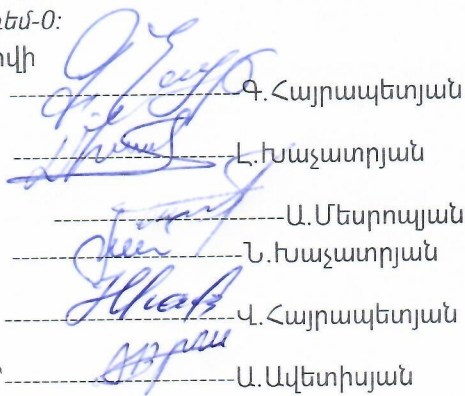 եմ-0:
վի
Գ.Հայրապետյան
Լ.Խաչատրյան
Ա.Մեսրոպյան
Ն.Խաչատրյան
Վ.Հայրապետյան
Ա.Ավետիսյան